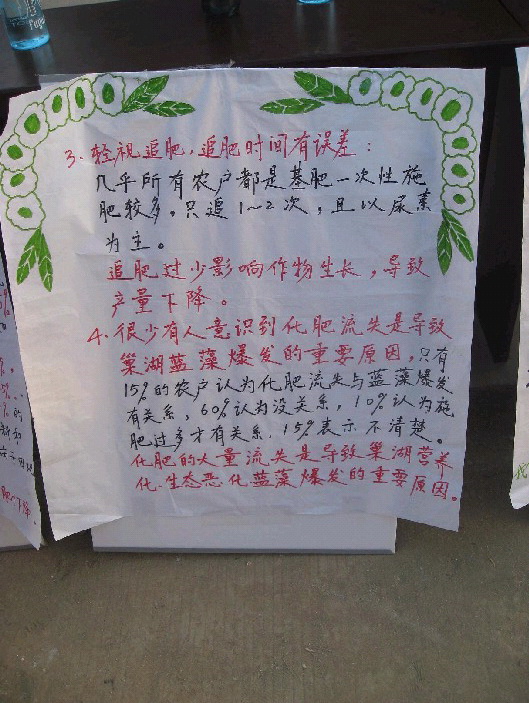 3.轻视追肥,追肥时间有误差:
几乎所有农户都是基肥一次性施
肥较多,只追1~2次,且以尿素
为主。
追肥过少影响作物生长,导致
产量下降。
4.很少有人意识到化肥流失是导致
巢湖蓝藻爆发的重要原因,只有
15%的农户认为化肥流失与蓝藻爆发
有关系,60%认为没关系,10%认为施
肥过多才有关系,15%表示不清楚。
化肥的大量流失是导致巢湖营养
化.生态恶化蓝藻爆发的重要原因。